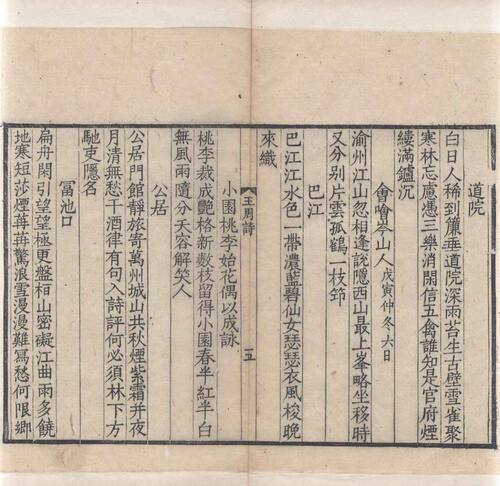 道院
白日人稀到簾垂道院深雨苔生古壁雪雀聚
寒林忘慮憑三樂消閑信五禽誰知是官府煙
縷滿鑪沉
會噲岑山人戊寅仲冬六日
渝州江山忽相逢說隱西山最上峯略坐移時
又分別片雲孤鶴一枝筇
巴江
巴江江水色一帶濃藍碧仙女瑟瑟衣風梭晚
來織
王周詩 五
小園桃李始花偶以成詠
桃李栽成艷格新數枝留得小園春半紅半白
無風雨隨分夭容解笑人
公居
公居門館靜旅寄萬州城山共秋煙紫霜并夜
月清無愁干酒律有句入詩評何必須林下方
馳吏隱名
冨池口
扁舟閑引望望極更盤桓山密礙江曲雨多饒
地寒短莎煙苒苒驚浪雪漫漫難寫愁何限鄉